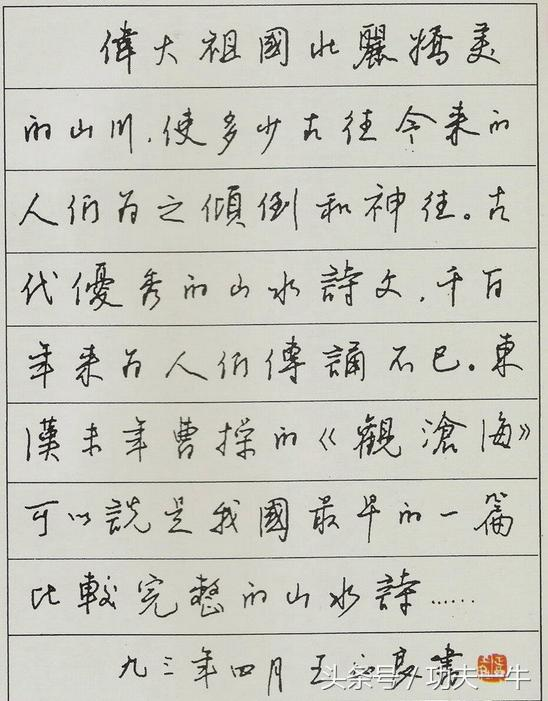 偉大祖國壯麗嬌美
的山川，使多少古往今来的
人们为之傾倒和神往。古
代優秀的山水詩文，千百
年来为人们傳誦不已。東
漢末年曹操的《觀滄海》
可以説是我國最早的一篇
比較完整的山水詩……
九三年四月王書
头条号/功夫一牛